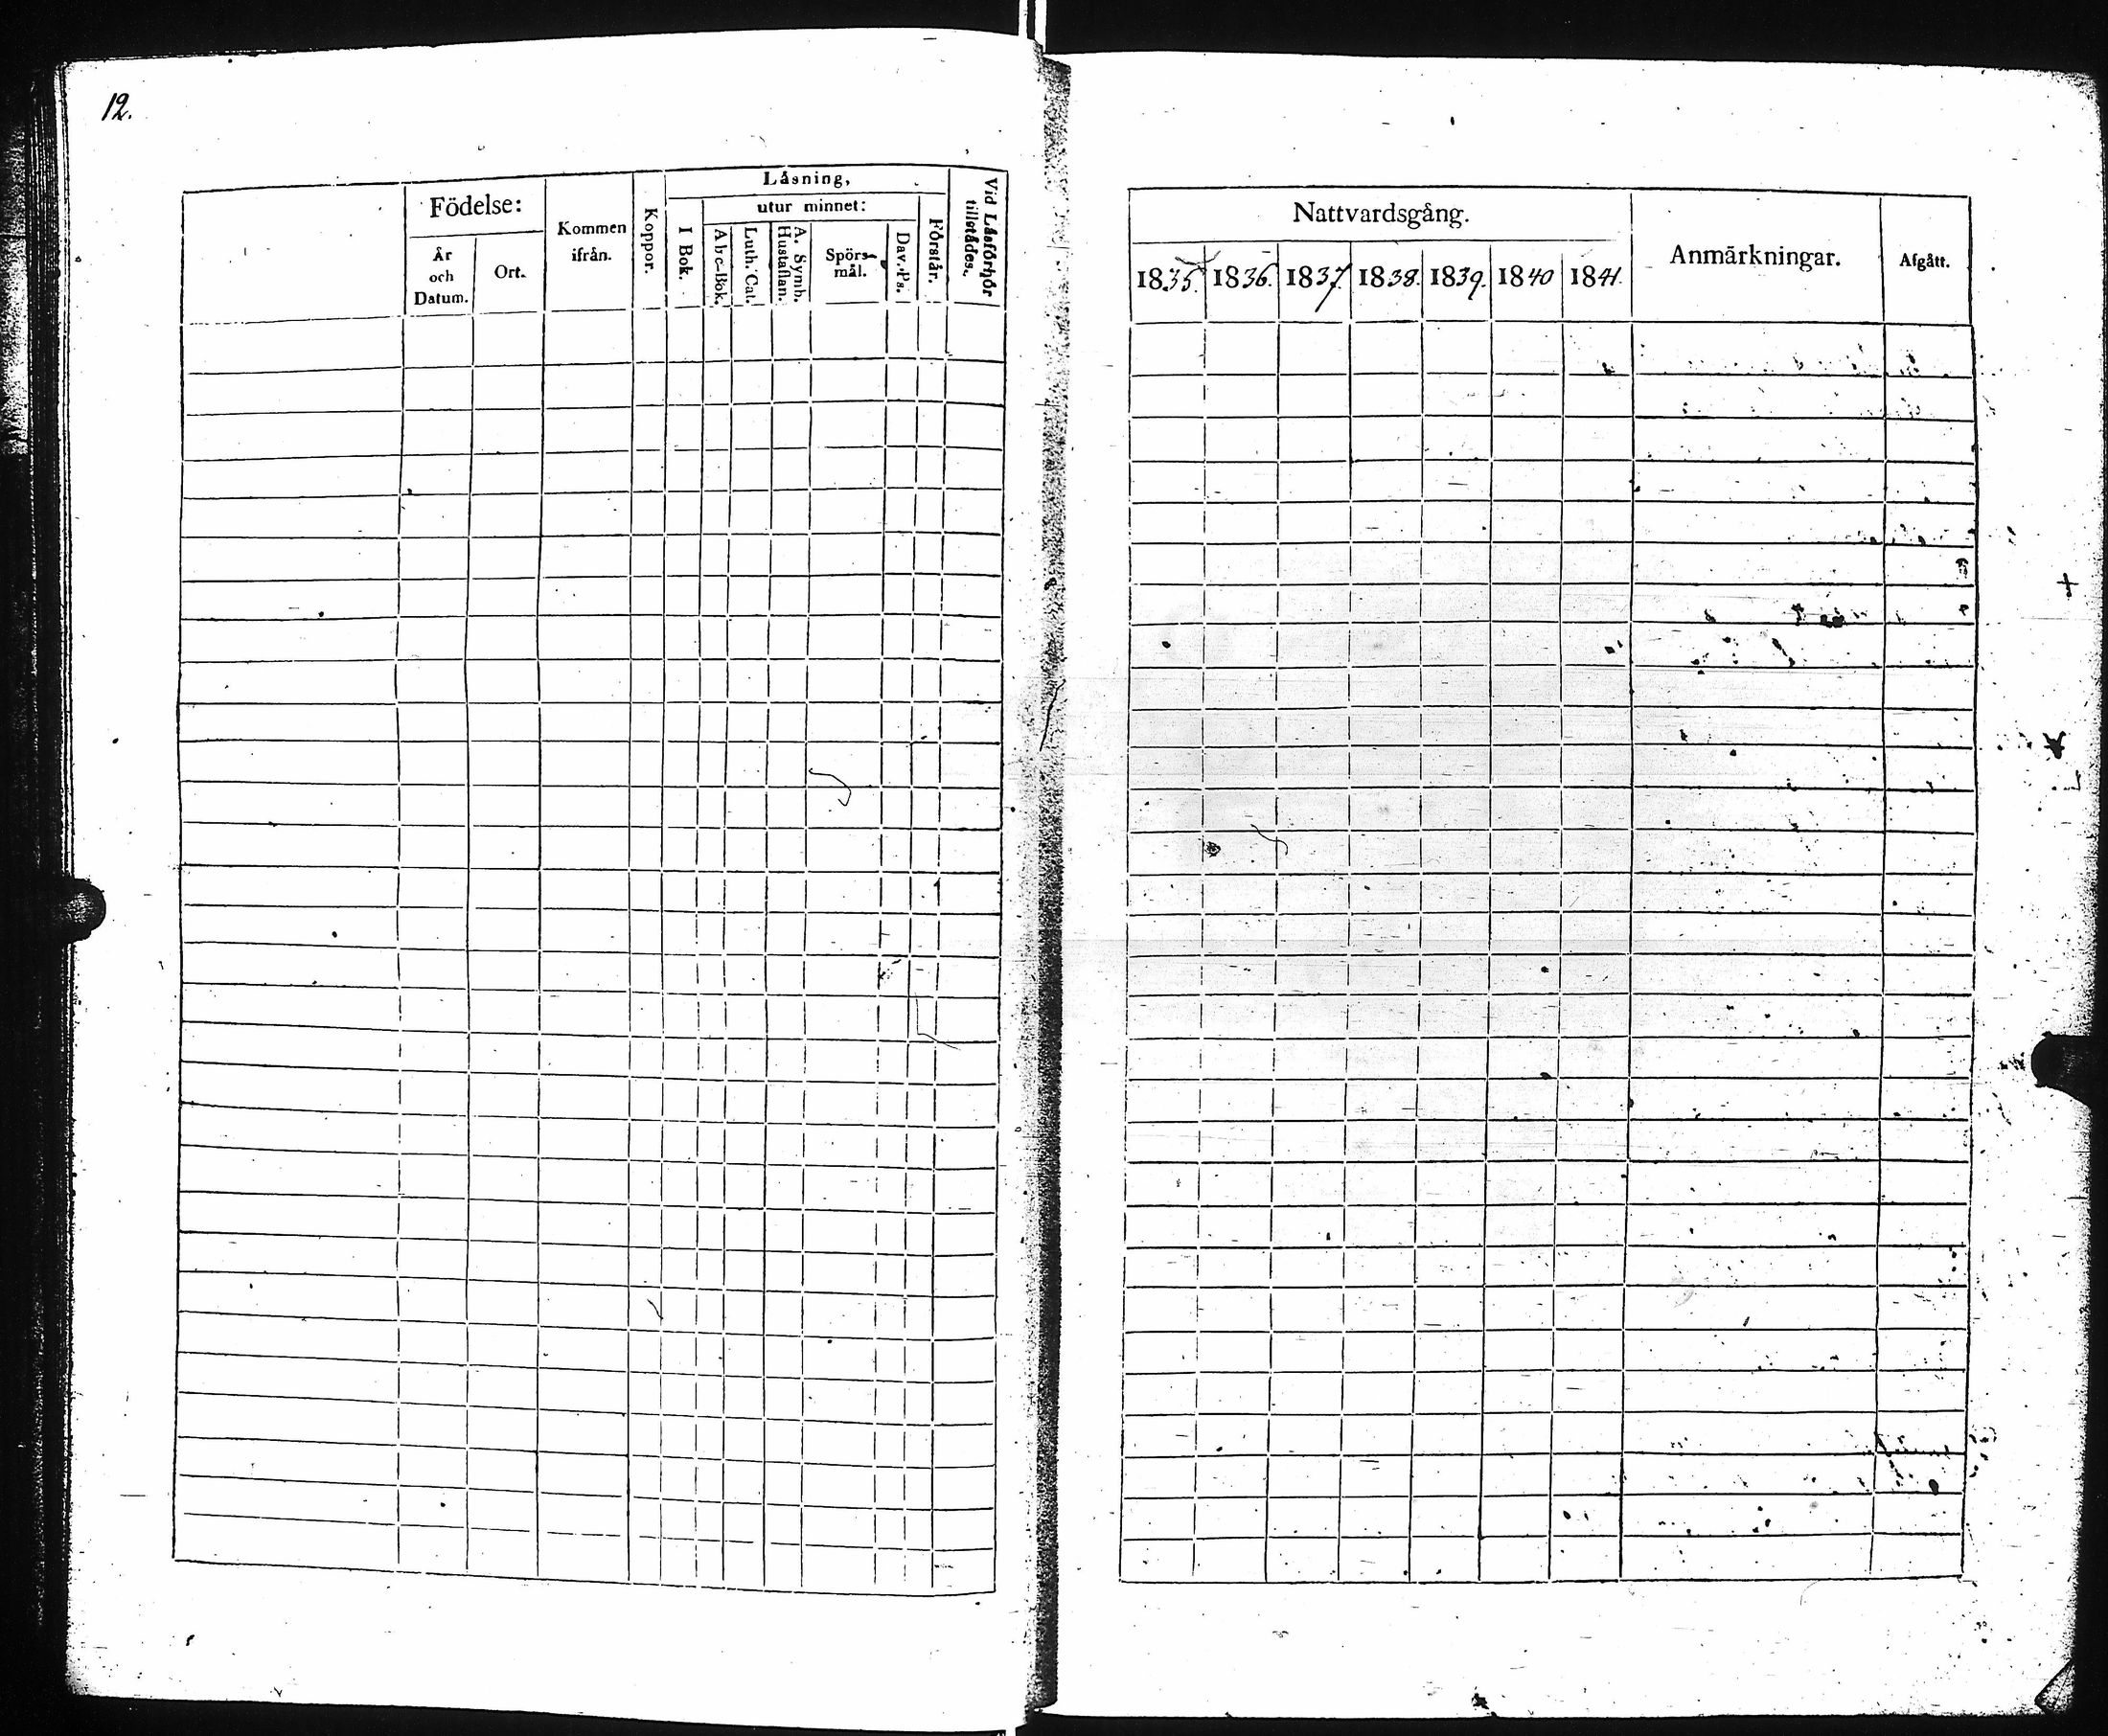 12.
Födelse:
År
och
Datum.
Ort.
Kommen
ifrån.
Koppor.
Läsning,
I Bok.
utur minnet:
Abc-Bok.
Luth. Cat.
A. Symb.
Hustaflan.
Spörs-
mål.
Dav. Ps.
Förstår.
Vid Läsförhör
tillstädes.
Nattvardsgång.
1835. 1836. 1837. 1838. 1839. 1840 1841.
Anmärkningar.
Afgått.